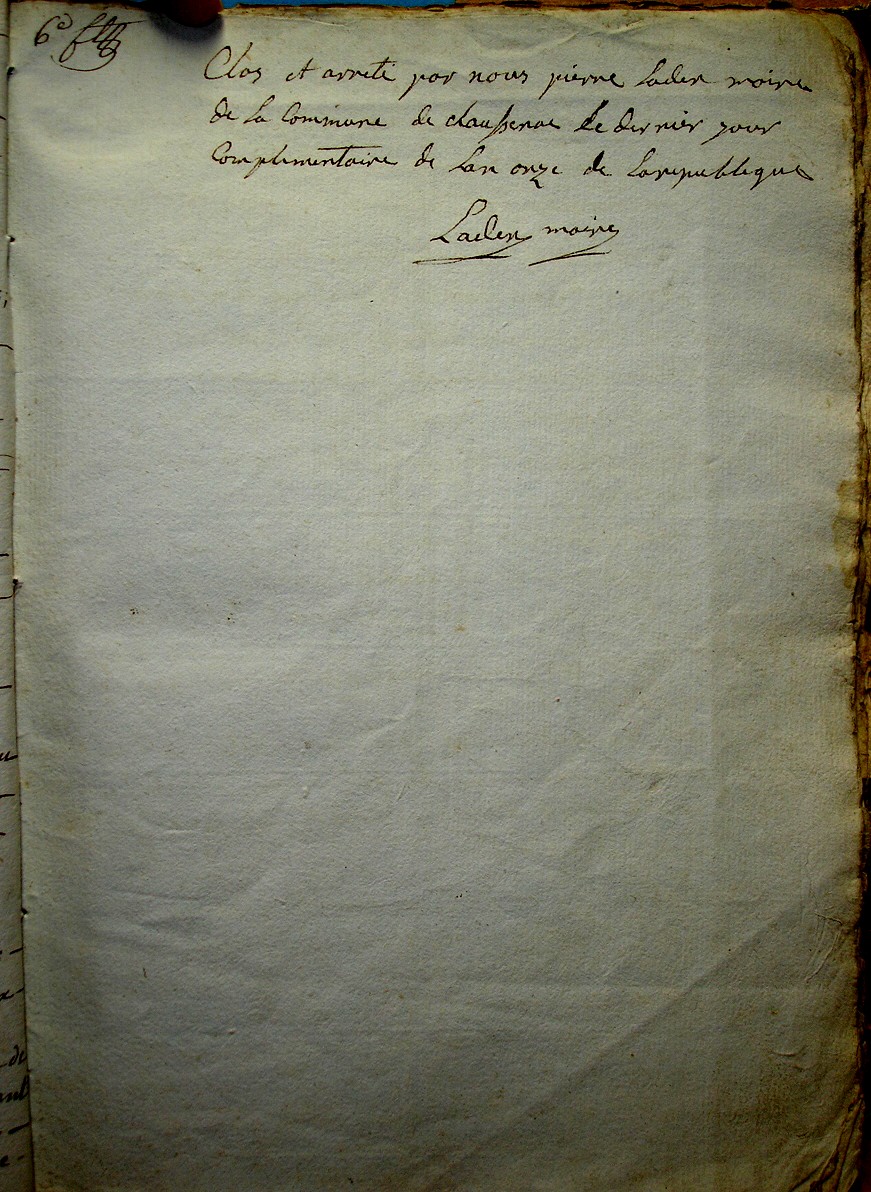 6e
Clos et arreté par nous pierre Lader maire
de La Commune de chaussenac le dernier jour
Complimentaire de Lan onze de Larepublique
Lader maire